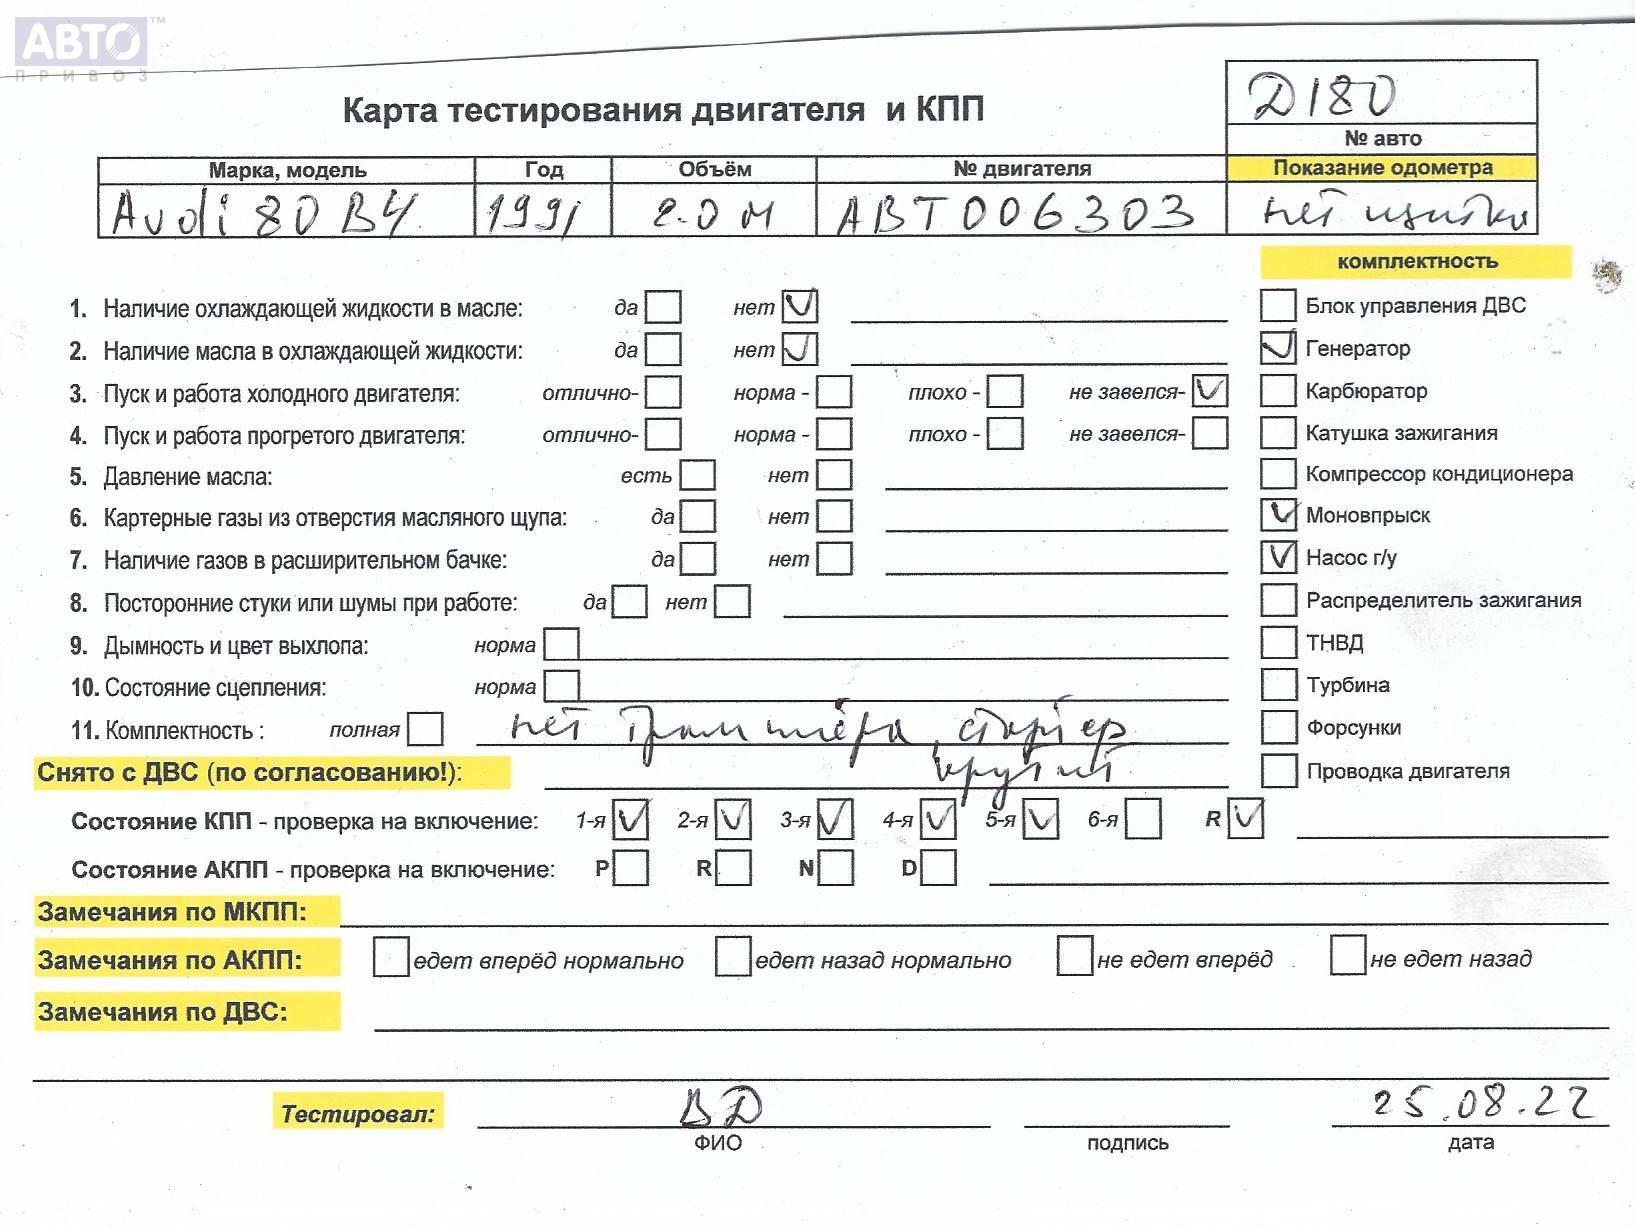 АВТО™
ПРИВОЗ
Д180
Карта тестирования двигателя и КПП
№ авто
Марка, модель Год Объём № двигателя Показание одометра
Audi 80 B4 1991 2.0 м ABT006303 нет щитка
комплектность
1. Наличие охлаждающей жидкости в масле: да нет Блок управления ДВС
2. Наличие масла в охлаждающей жидкости: да нет Генератор
3. Пуск и работа холодного двигателя: отлично- норма - плохо - не завелся- Карбюратор
4. Пуск и работа прогретого двигателя: отлично- норма - плохо - не завелся- Катушка зажигания
5. Давление масла: есть нет Компрессор кондиционера
6. Картерные газы из отверстия масляного щупа: да нет Моновпрыск
7. Наличие газов в расширительном бачке: да нет Насос г/у
8. Посторонние стуки или шумы при работе: да нет Распределитель зажигания
9. Дымность и цвет выхлопа: норма ТНВД
10. Состояние сцепления: норма Турбина
11. Комплектность : полная нет трамплёра, стартер Форсунки
Снято с ДВС (по согласованию!): крутит Проводка двигателя
Состояние КПП - проверка на включение: 1-я 2-я 3-я 4-я 5-я 6-я R
Состояние АКПП - проверка на включение: P R N D
Замечания по МКПП:
Замечания по АКПП: едет вперёд нормально едет назад нормально не едет вперёд не едет назад
Замечания по ДВС:
Тестировал: ВД 25.08.22
ФИО подпись дата